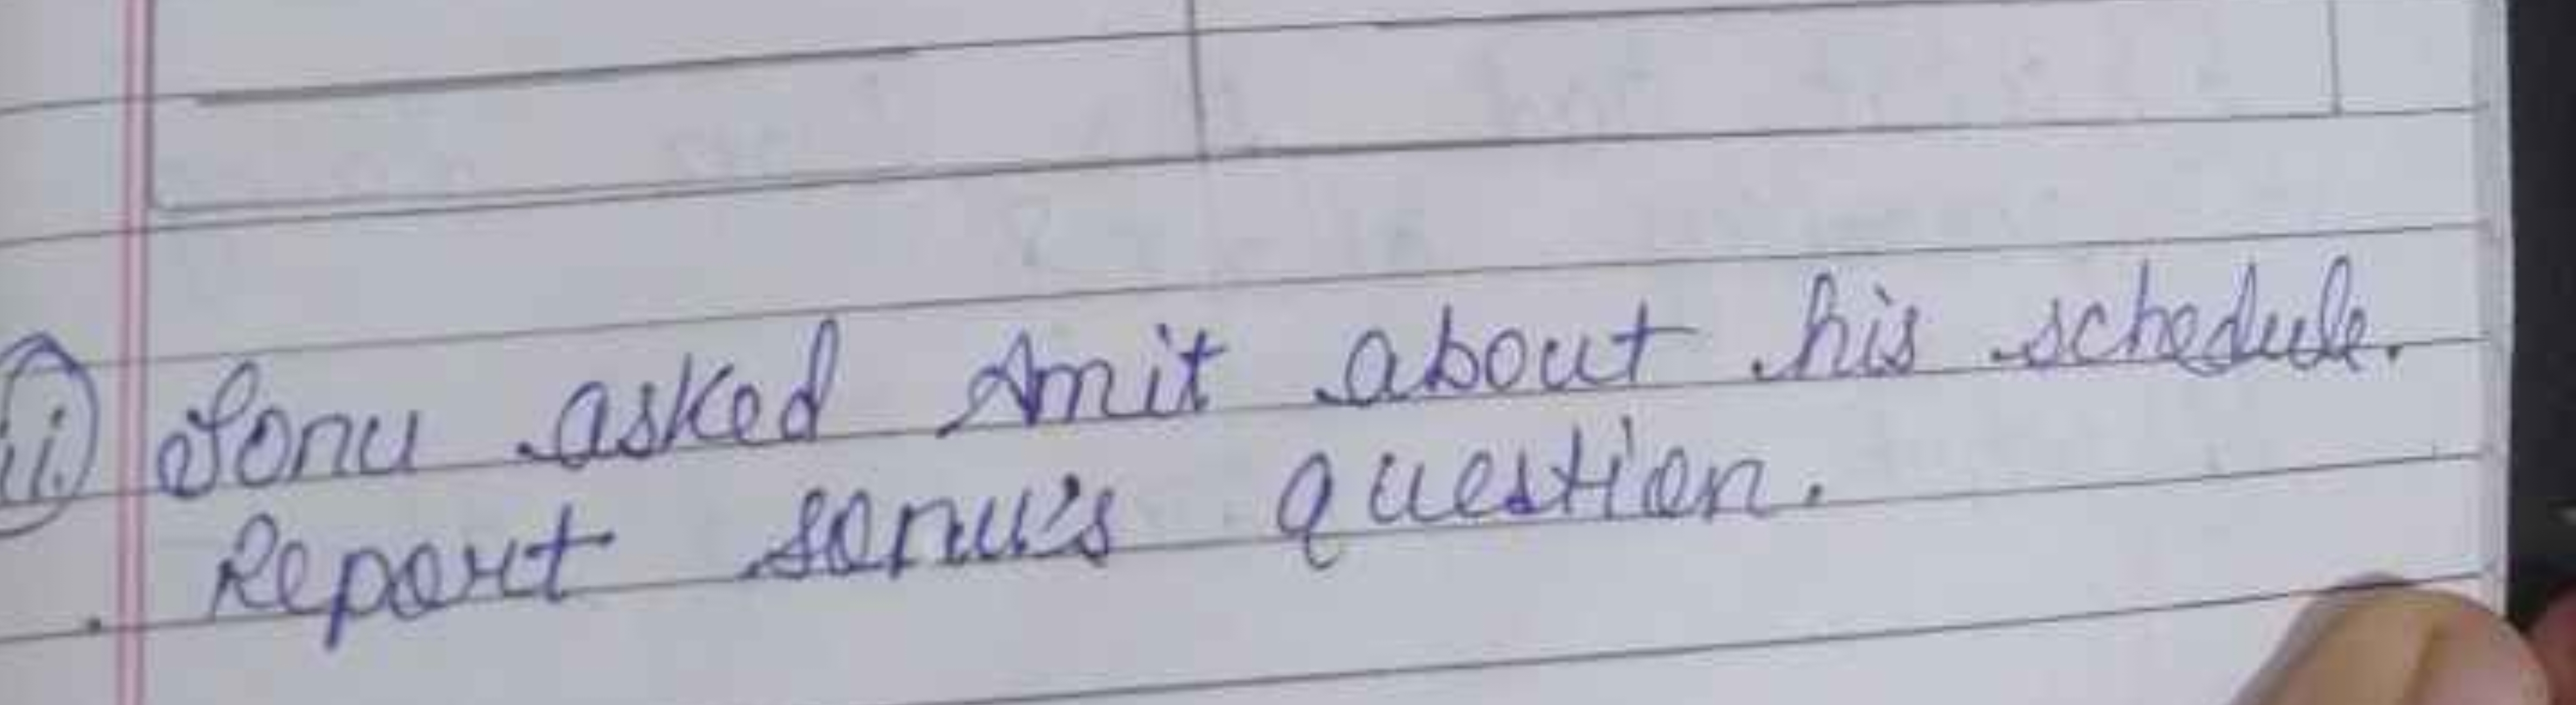 ii. Sonu asked Amit about his schedule.
Report sonu's question.